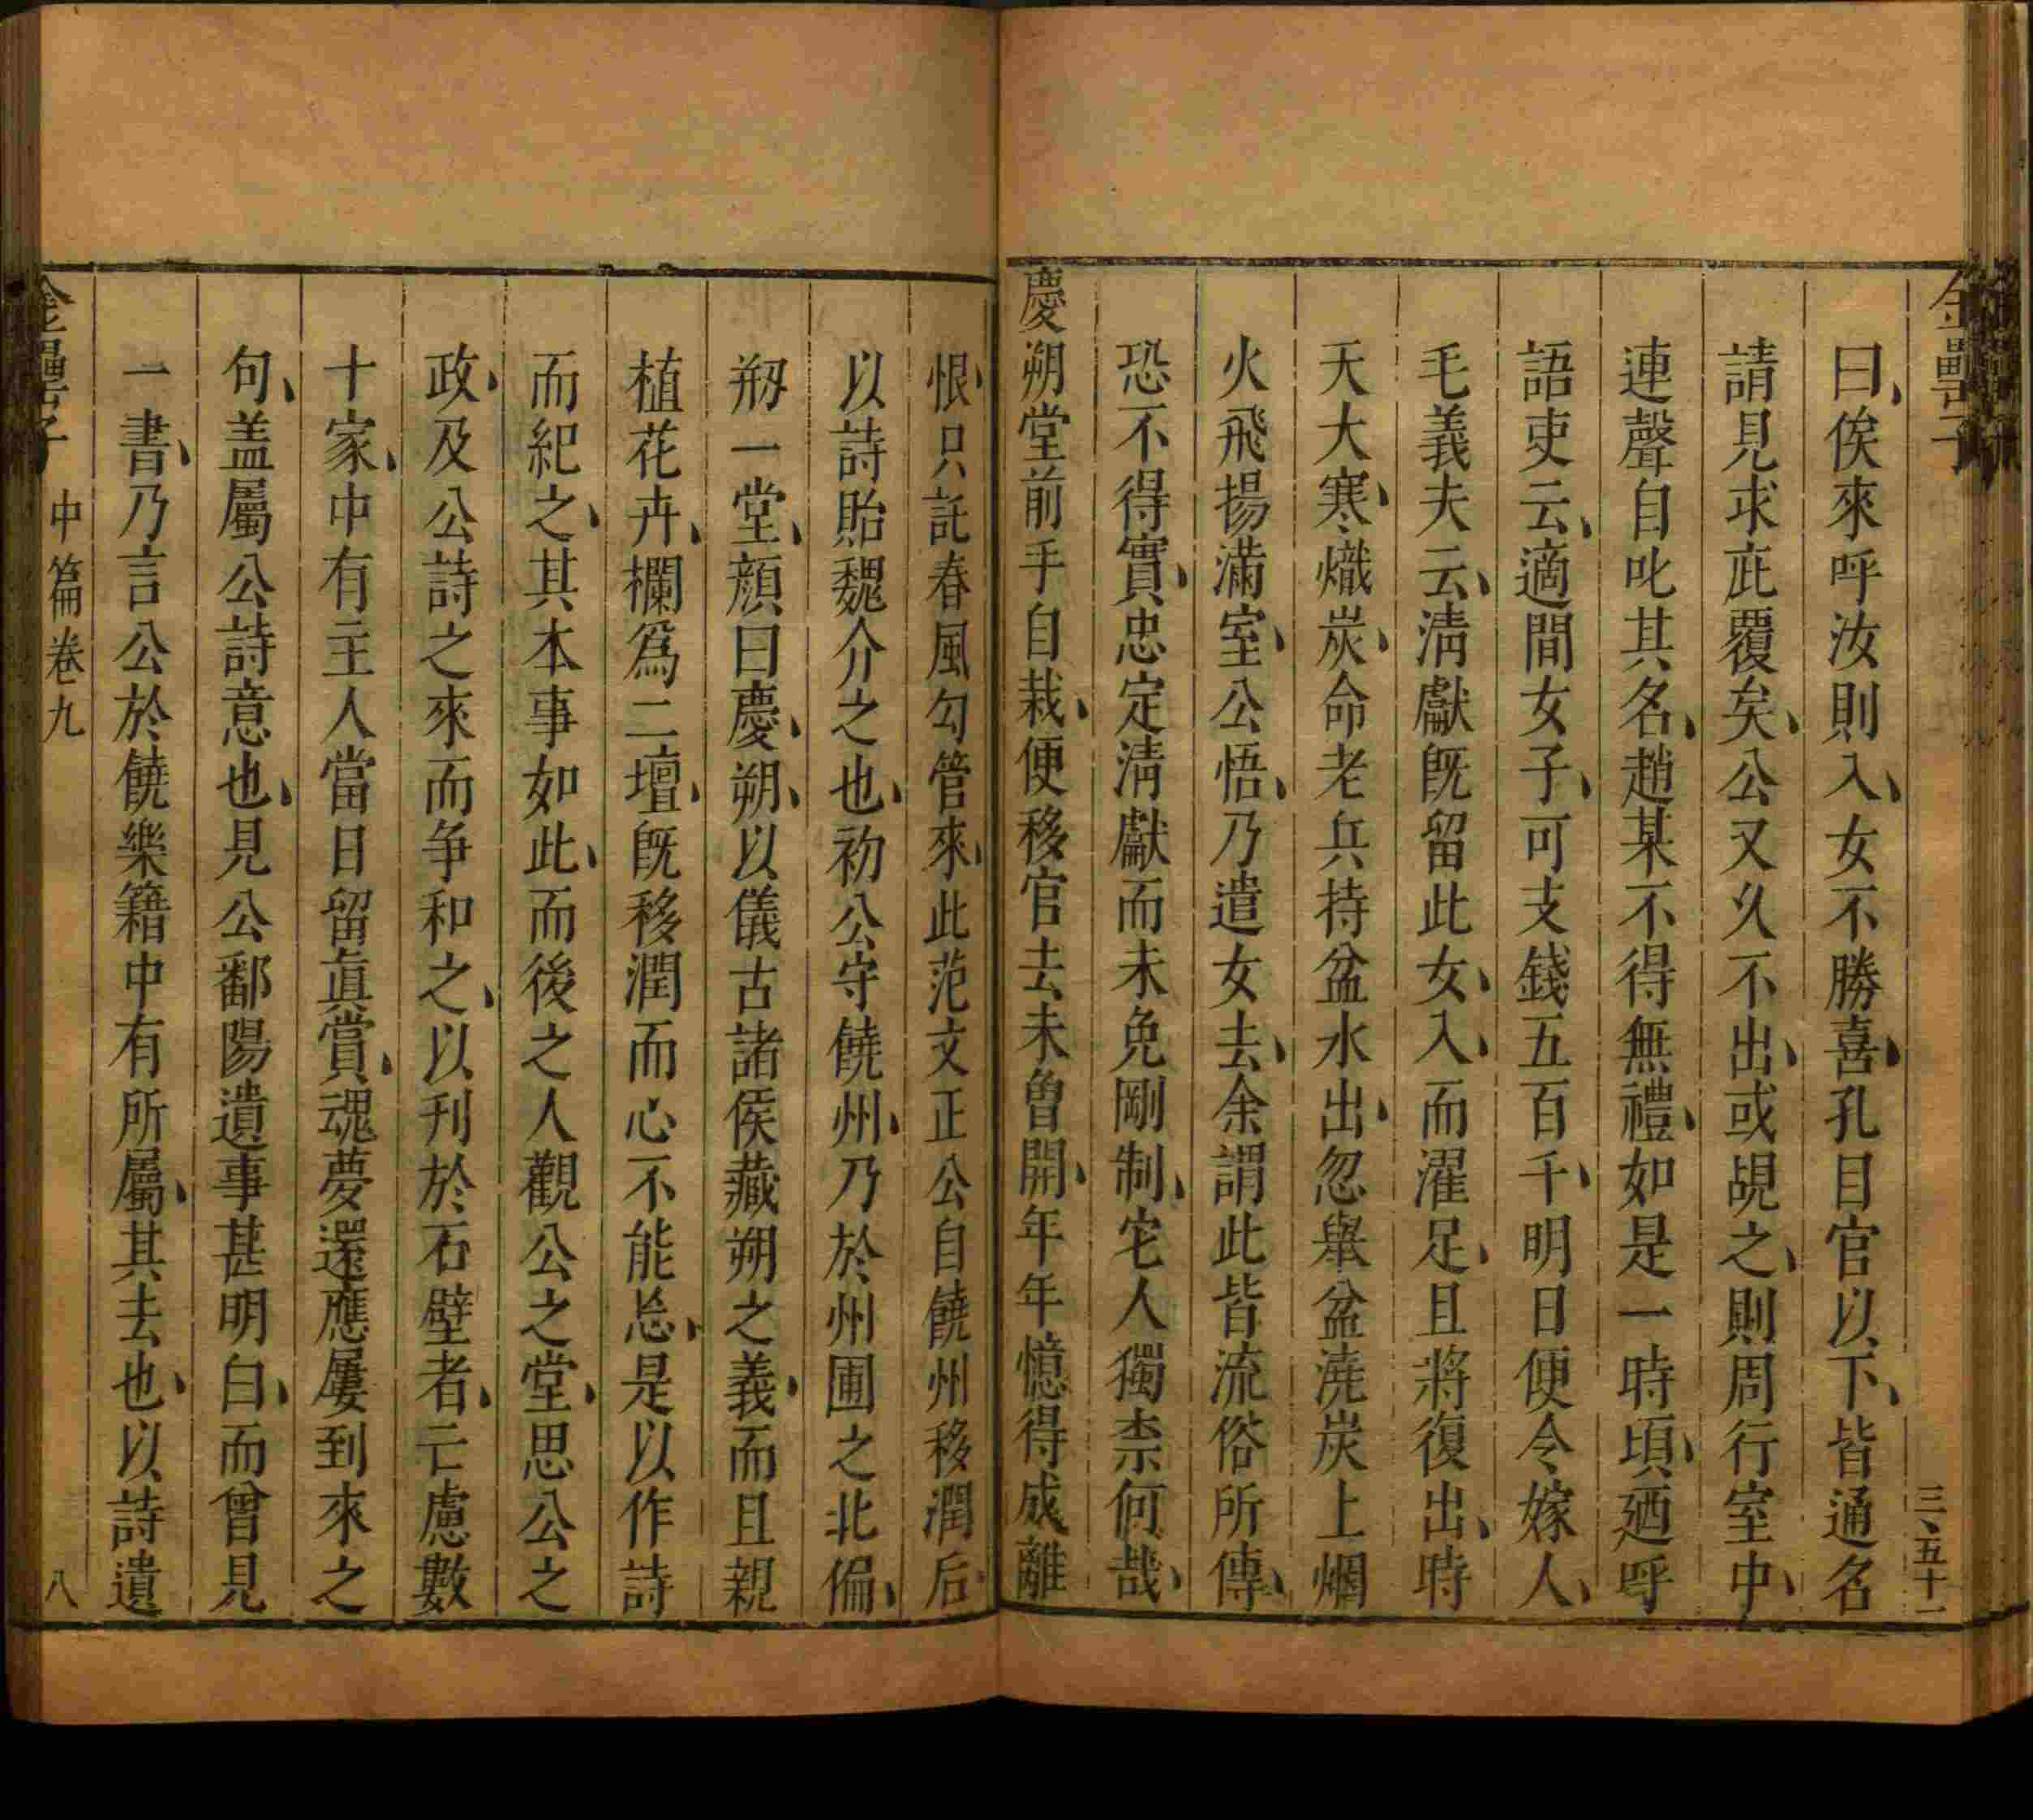 金罍子
三、五十一
曰、俟來呼汝則入、女不勝喜、孔目官以下、皆通名
請見求庇覆矣、公又久不出、或覘之、則周行室中、
連聲自叱其名、趙某不得無禮、如是一時頃、廼呼
語吏云、適間女子、可支錢五百千、明日便令嫁人、
毛義夫云、淸獻旣留此女、入、而濯足、且將復出、時
天大寒、熾炭、命老兵持盆水出、忽舉盆澆炭上烟
火飛揚滿室、公悟、乃遣女去、余謂此皆流俗所傳、
恐不得實、忠定淸獻而未免剛制、宅人獨柰何哉、
慶朔堂前手自栽、便移官去未曾開、年年憶得成離
恨、只託春風勾管來、此范文正公自饒州移潤后、
以詩貽魏介之也、初公守饒州、乃於州圃之北偏、
剏一堂、顔曰慶、朔、以儀古諸侯藏朔之義、而且親
植花卉、欄爲二壇、旣移潤而心不能忘、是以作詩
而紀之、其本事如此、而後之人觀公之堂、思公之
政、及公詩之來而争和之、以刊於石壁者、亡慮數
十家、中有主人當日留眞賞、魂夢還應屢到來之
句、盖屬公詩意也、見公鄱陽遺事甚明白、而曾見
一書、乃言公於饒樂籍中有所屬、其去也、以詩遺
金罍子
中篇卷九
八